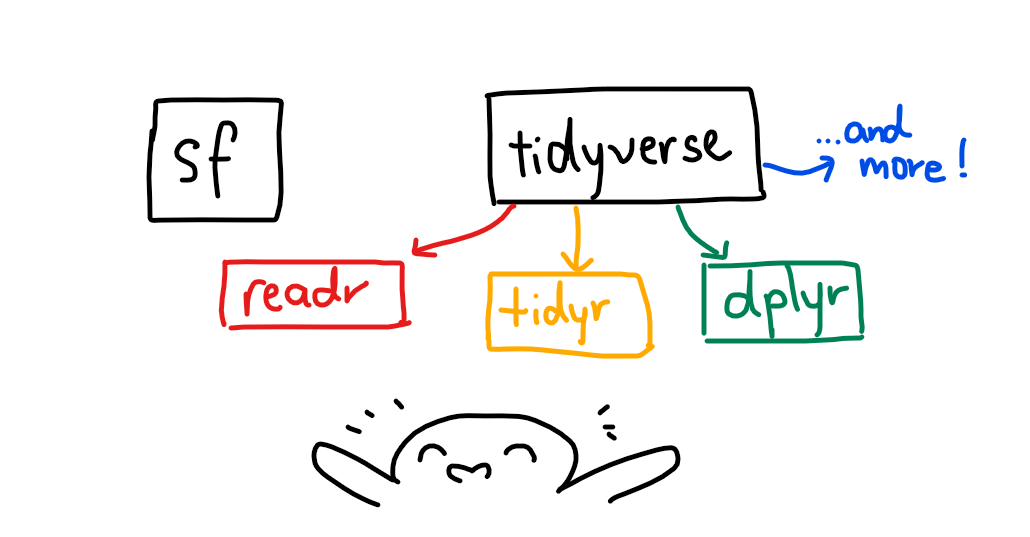 sf
tidyverse
...and
more!
readr
tidyr
dplyr